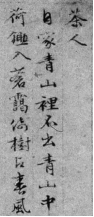 茶人
自家青山裡不出青山中
荷鋤入蒼靄倚樹占春風